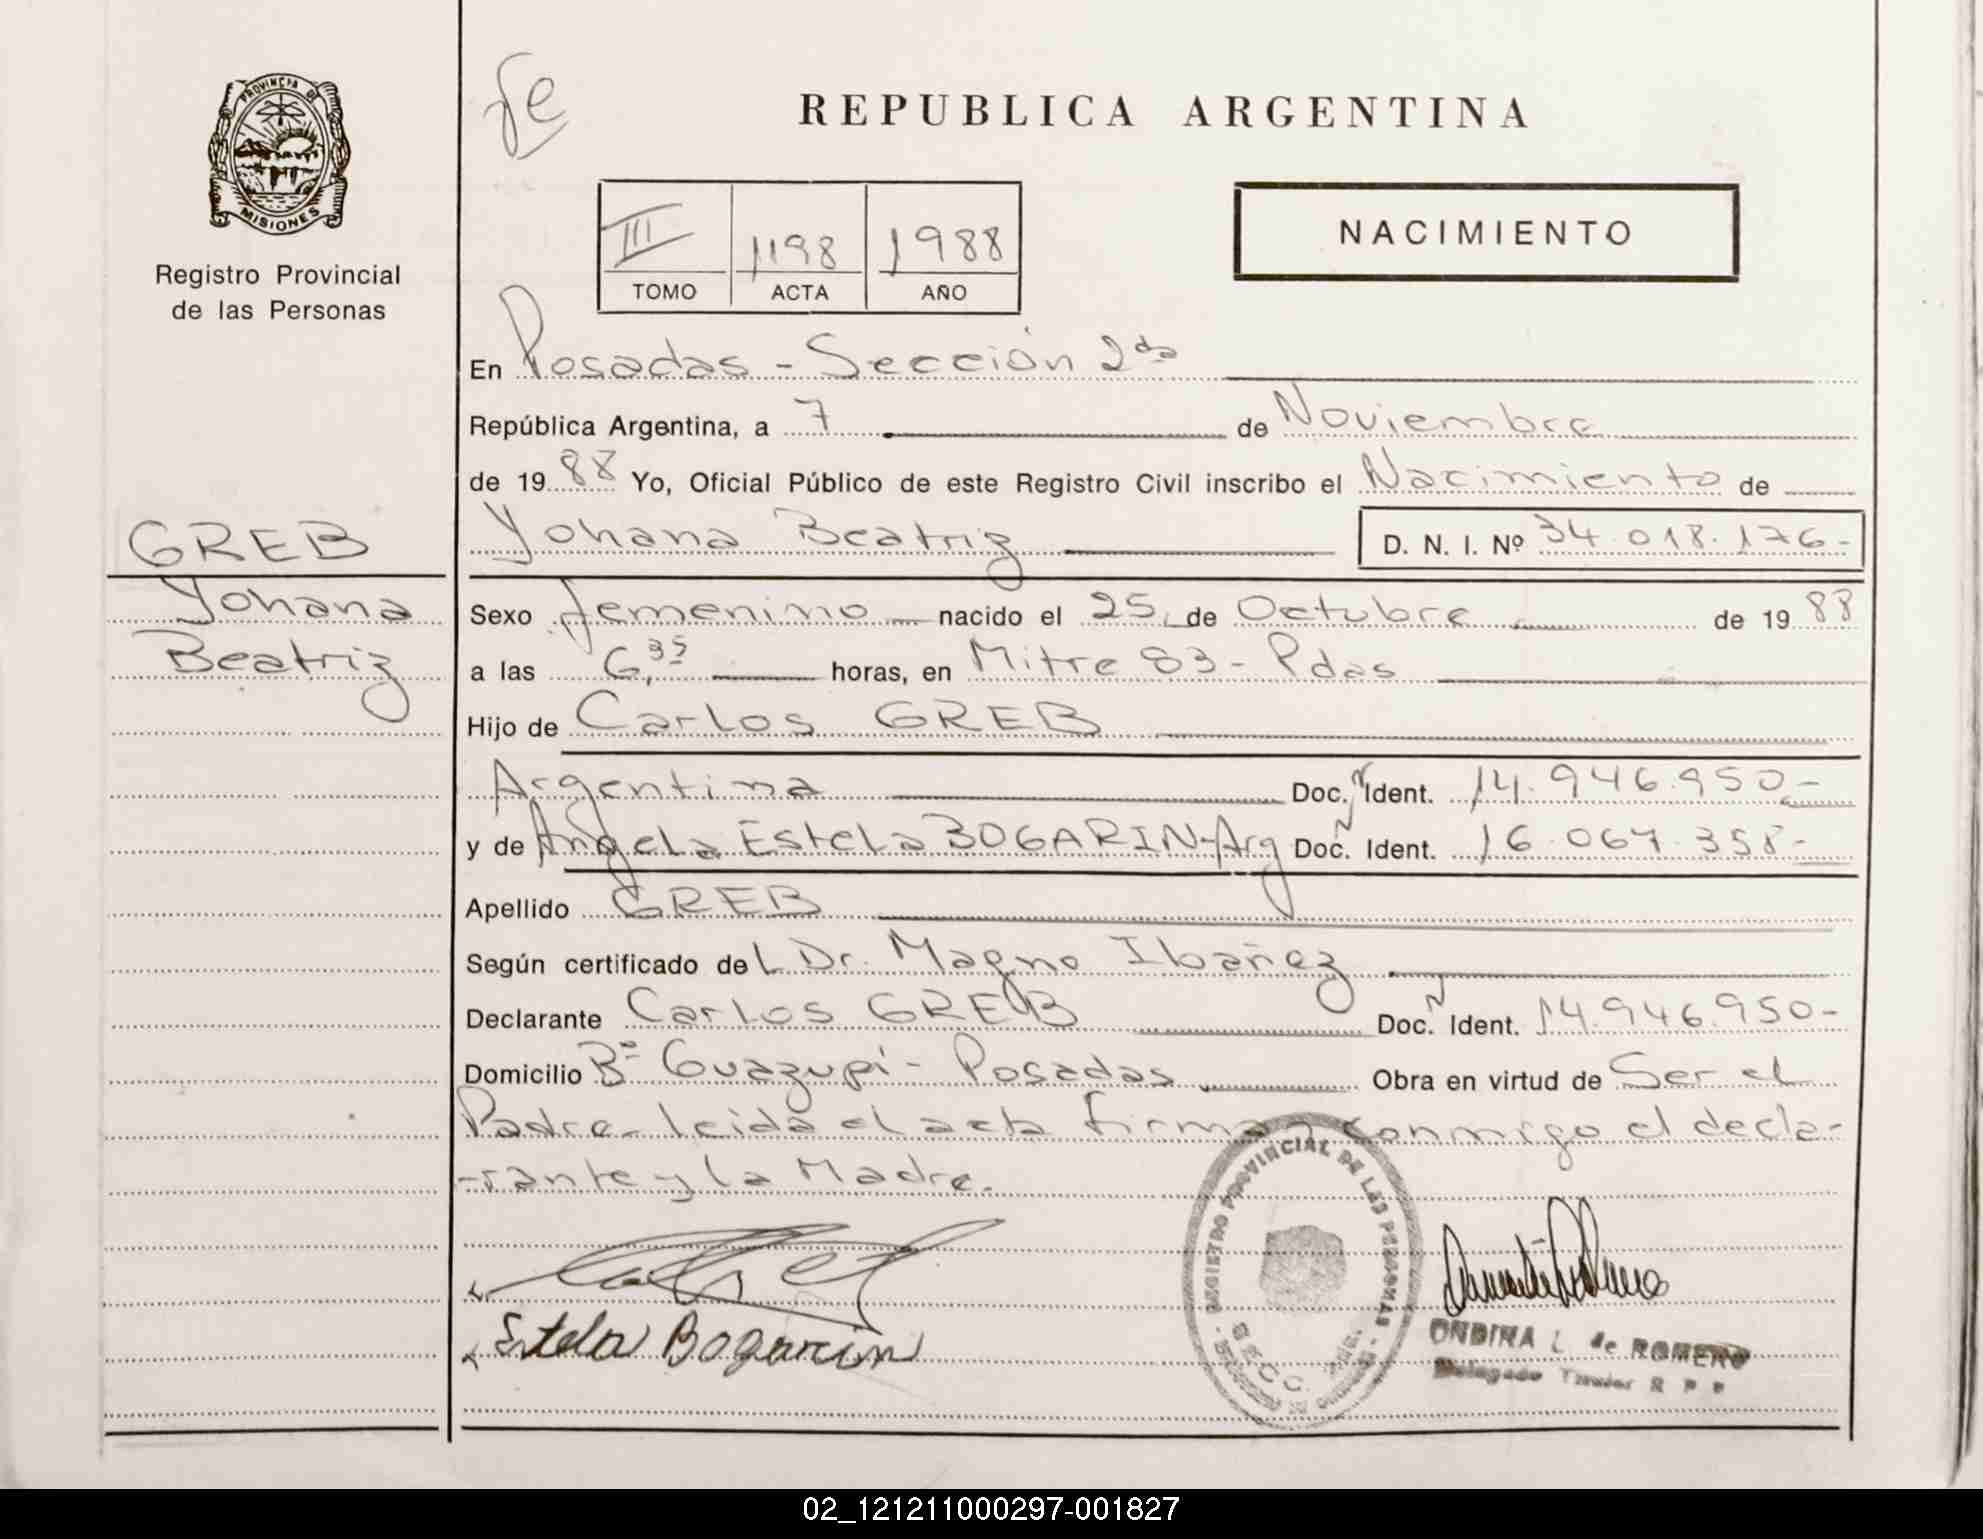 PROVINCIA DE
MISIONES
Registro Provincial
de las Personas
fe
REPUBLICA ARGENTINA
III 1198 1988
TOMO ACTA AÑO
NACIMIENTO
En Posadas - Sección 2da
República Argentina, a 7 de Noviembre
de 1988 Yo, Oficial Público de este Registro Civil inscribo el Nacimiento de
GREB
Yohana
Beatriz
Yohana Beatriz D. N. I. Nº 34.018.176-
Sexo femenino nacido el 25 de Octubre de 1988
a las 6,35 horas, en Mitre 83 - Pdas
Hijo de Carlos GREB
Argentina Doc. Ident. 14.946.950-
y de Angela Estela BOGARIN-Arg Doc. Ident. 16.067.358-
Apellido GREB
Según certificado del Dr. Magno Ibañez
Declarante Carlos GREB Doc. Ident. 14.946.950-
Domicilio Bº Guazupi - Posadas Obra en virtud de Ser el
Padre- leida el acta firma conmigo el decla-
-rante y la Madre.
Estela Bogarin
REGISTRO PROVINCIAL DE LAS PERSONAS
SECC.
ONDINA L. de ROMERO
Delegado Titular R P P
02_121211000297-001827